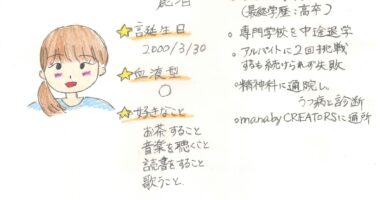 ★誕生日
2000/3/30
★血液型
O
★好きなこと
お茶すること
音楽を聴くこと
読書をすること
歌うこと
(最終学歴:高卒)
○専門学校を中途退学
○アルバイトに2回挑戦
するも続けられず失敗
○精神科に通院し
うつ病と診断
○manabyCREATORSに通所